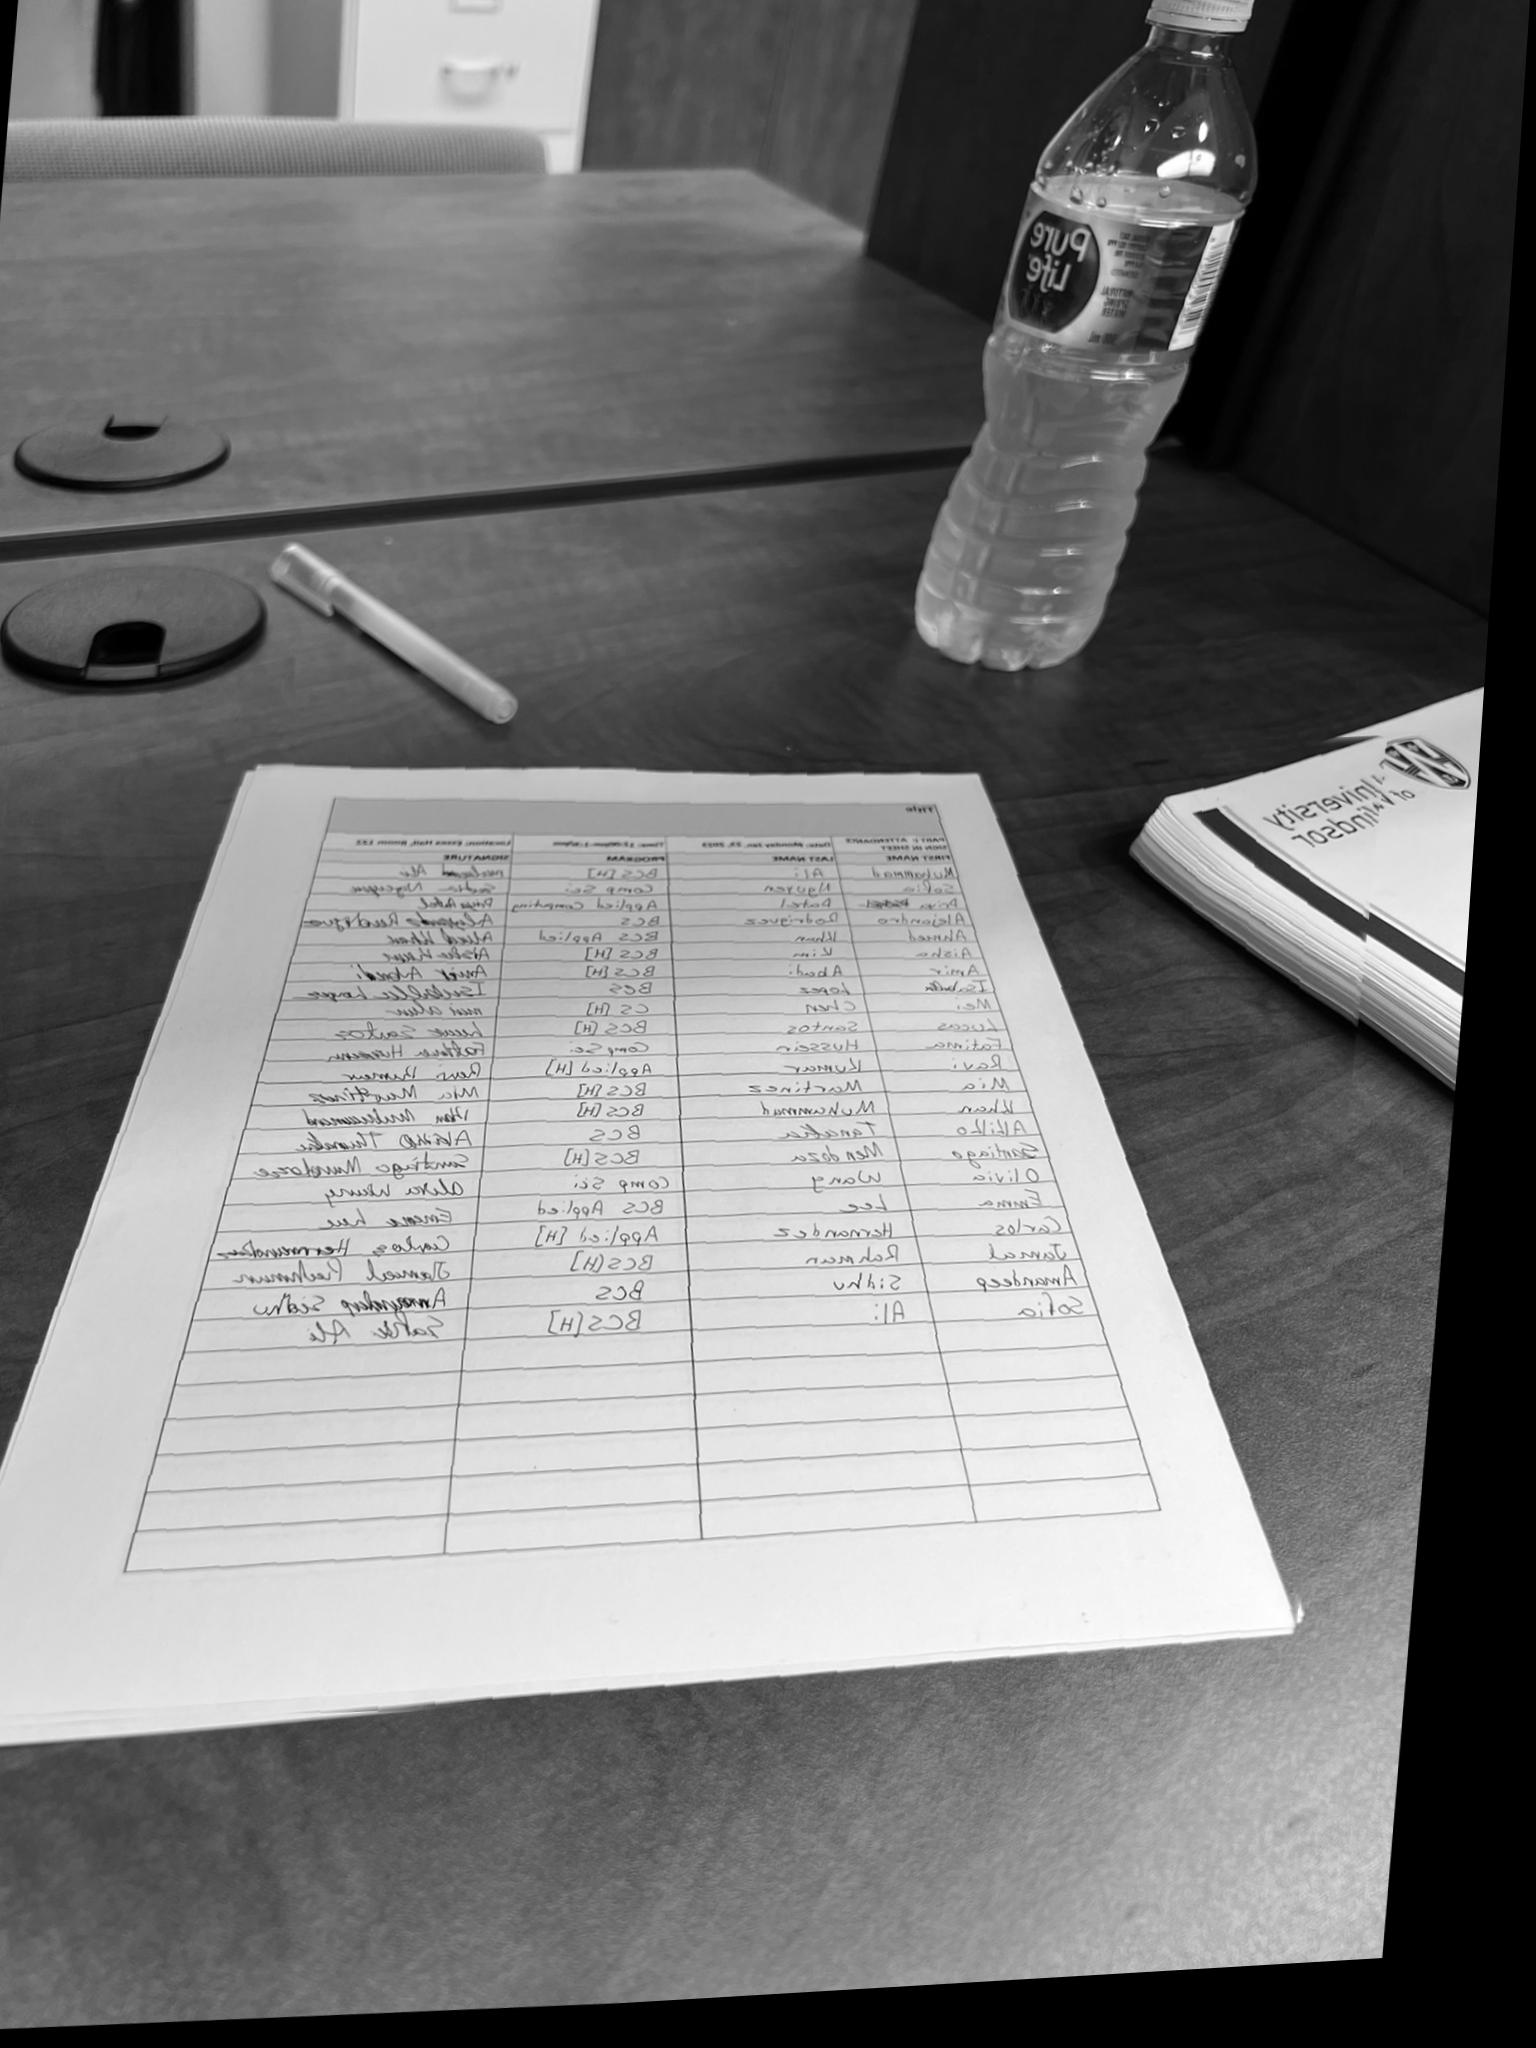 Pure
Life
NATURAL
SPRING
WATER
500 mL
University
of Windsor
Title
PART I: ATTENDANCE SIGN IN SHEET Date: Monday Jan, 23, 2023 Time: 12:00pm-1:30pm Location: Essex Hall, Room 122
FIRST NAME LAST NAME PROGRAM SIGNATURE
Muhammad Ali BCS [H] Ali
Sofia Nguyen Comp Sci Sofia Nguyen
Priya Patel Applied Computing Priya Patel
Alejandro Rodriguez BCS Alejandro Rodriguez
Ahmed Khan BCS Applied Ahmed Khan
Aisha Kim BCS [H] Aisha
Amir Abadi BCS [H] Amir Abadi
Isabella Lopez BCS Isabella Lopez
Mei Chen CS [H] mei chen
Lucas Santos BCS [H] Lucas Santos
Fatima Hussein Comp Sci Fatima Hussein
Ravi Kumar Applied [H] Ravi Kumar
Mia Martinez BCS [H] Mia Martinez
Khan Muhammad BCS [H] Khan Muhammad
Akiko Tanaka BCS Akiko
Santiago Mendoza BCS [H] Santiago
Olivia Wang Comp Sci
Emma Lee BCS Applied
Carlos Hernandez Applied [H] Carlos Hernandez
Jamal Rahman BCS [H] Jamal Rahman
Amandeep Sidhu BCS Amandeep Sidhu
Sofia Ali BCS [H] Ali